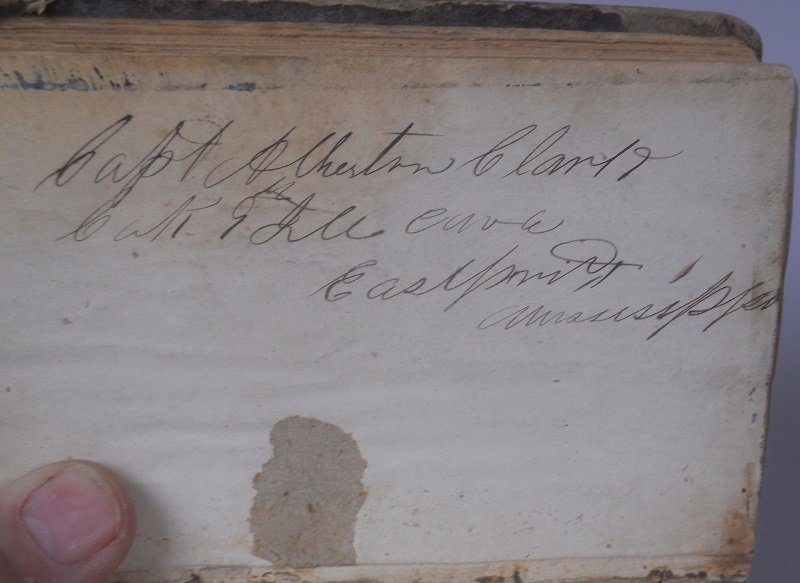 Capt Atherton Clark
Co K. 9th Ill Cava
Eastport
Missisippi